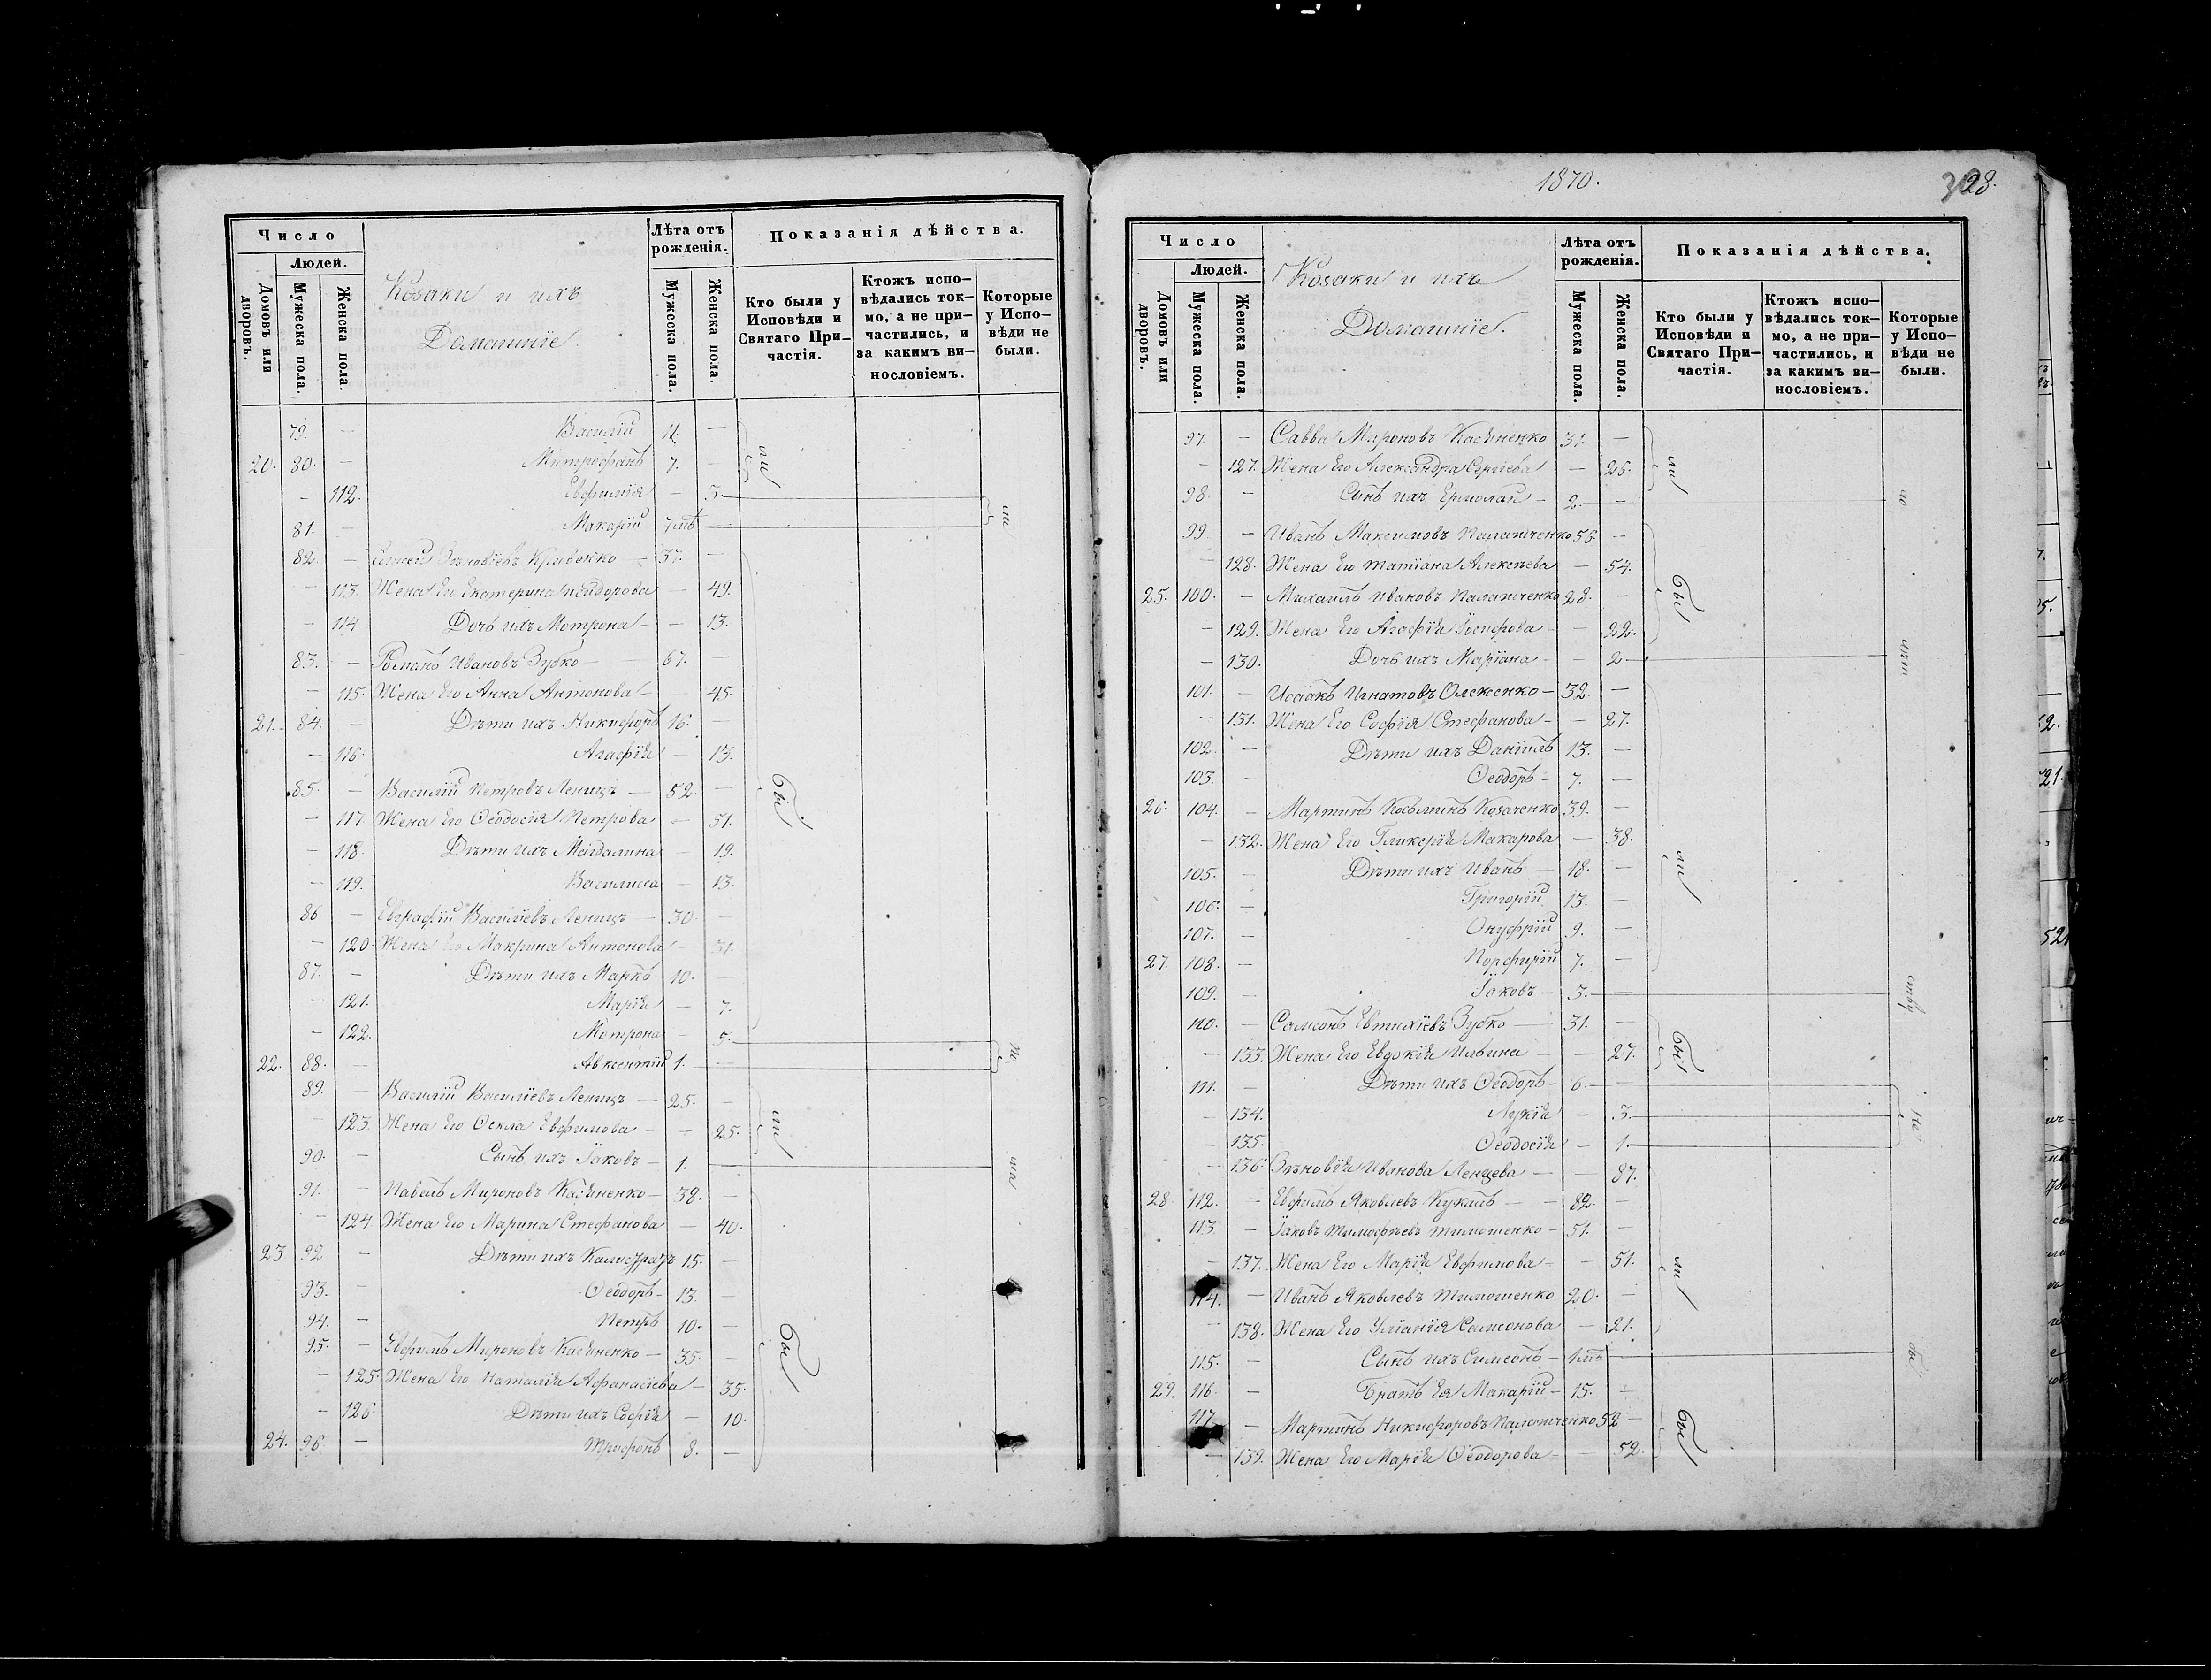 Число
Людей.
Домовъ или дворовъ.
Мужеска пола.
Женска пола.
Козаки и ихъ
Домашніе.
Лѣта отъ рожденія.
Мужеска пола.
Женска пола.
Показанія дѣйства.
Кто были у Исповѣди и Святаго При-частія.
Ктожъ испо-вѣдались ток-мо, а не при-частились, и за какимъ ви-нословіемъ.
Которые у Испо-вѣди не были.
79. — Василій —
20. 80. — Митрофанъ 7. —
— 112. Евфимія — 3.
81. — Макарій 7 мѣ
82. — Кривенко — 37. —
— 113. Жена Его Екатерина Исидорова — 49.
— 114 Дочь ихъ Мотрона — — 13.
83. — Романъ Ивановъ Зубко — 67. —
— 115. Жена Его Анна Антонова — — 45.
21. 84. — Дѣти ихъ Никифоръ 16. —
— 116. Агафія — 13.
85. — Василій Петровъ Леницъ — 52. —
— 117. Жена Его Ѳеодосія Петрова — 51.
— 118. Дѣти ихъ Магдалина — 19.
— 119. Василисса — 13.
86 — Евграфій Василіевъ Леницъ — 30. —
— 120. Жена Его Макрина Антонова — 31.
87. — Дѣти ихъ Маркъ 10. —
— 121. Марія — 7.
— 122. Мотрона — 5.
22. 88. — Авксентій 1. —
89. — Василій Василіевъ Леницъ — 25. —
— 123. Жена Его Ѳекла Евфимова — — 25.
90. — Сынъ ихъ Іаковъ — 1. —
91. — Павелъ Мироновъ Касяненко — 38. —
— 124 Жена Его Марина Стефанова — 40.
23 92 — Дѣти ихъ Калистратъ 15. —
93. — Ѳеодоръ — 13. —
94. — Петръ 10. —
95. — Евфимъ Мироновъ Касяненко — 35. —
— 125. Жена Его Наталія Афанасіева — 35.
— 126. Дѣти ихъ Софія — 10.
24. 96. — Трифонъ 8. —
бы
бы
1870.
28.
Число
Людей.
Домовъ или дворовъ.
Мужеска пола.
Женска пола.
Козаки и ихъ
Домашніе.
Лѣта отъ рожденія.
Мужеска пола.
Женска пола.
Показанія дѣйства.
Кто были у Исповѣди и Святаго При-частія.
Ктожъ испо-вѣдались ток-мо, а не при-частились, и за какимъ ви-нословіемъ.
Которые у Испо-вѣди не были.
97. — Савва Мироновъ Касяненко 31. —
— 127. Жена Его Александра Сергіева — 25.
98. — Сынъ ихъ Ермолай — 2. —
99. — Иванъ Максимовъ Палатченко 55. —
— 128. Жена Его Татіана Алексѣева — 54.
25. 100. — Михаилъ Ивановъ Палатченко 28. —
— 129. Жена Его Агафія Іосифова — — 22.
— 130. Дочь ихъ Маріана — — 2
101. — Исаакъ Игнатовъ Олексенко — 32 —
— 131. Жена Его Софія Стефанова — — 27.
102. — Дѣти ихъ Даніилъ 13. —
103. — Ѳеодоръ — 7. —
26. 104. — Мартинъ Козьминъ Козаченко 39. —
— 132. Жена Его Гликерія Макарова — 38.
105. — Дѣти ихъ Иванъ — 18. —
106. — Григорій 13. —
107. — Онуфрій 9. —
27. 108. — Порфирій 7. —
109. — Іаковъ — 3.
110. — Самсонъ Евтихіевъ Зубко — 31. —
— 133. Жена Его Евдокія Ильина — — 27.
111. — Дѣти ихъ Ѳеодоръ — 6.
— 134. Лукія — 3.
— 135. Ѳеодосія — 1.
— 136. Зѣновія Иванова Ленцева — — 87.
28 112. — Евфимъ Яковлевъ Кукалъ — — 82. —
113 — Іаковъ Тимофѣевъ Тимошенко — 51. —
— 137. Жена Его Марія Евфимова — — 51.
114. — Иванъ Яковлевъ Тимошенко 20. —
— 138. Жена Его Уліанія Самсонова — 21.
115. — Сынъ ихъ Симеонъ — 1 мѣ
29. 116. — Братъ Ея Макарій — 15. —
117 — Мартинъ Никифоровъ Палатченко 52 —
— 139. Жена Его Марія Ѳеодорова — — 52.
ли
бы
ли
бы
ли
бы
не